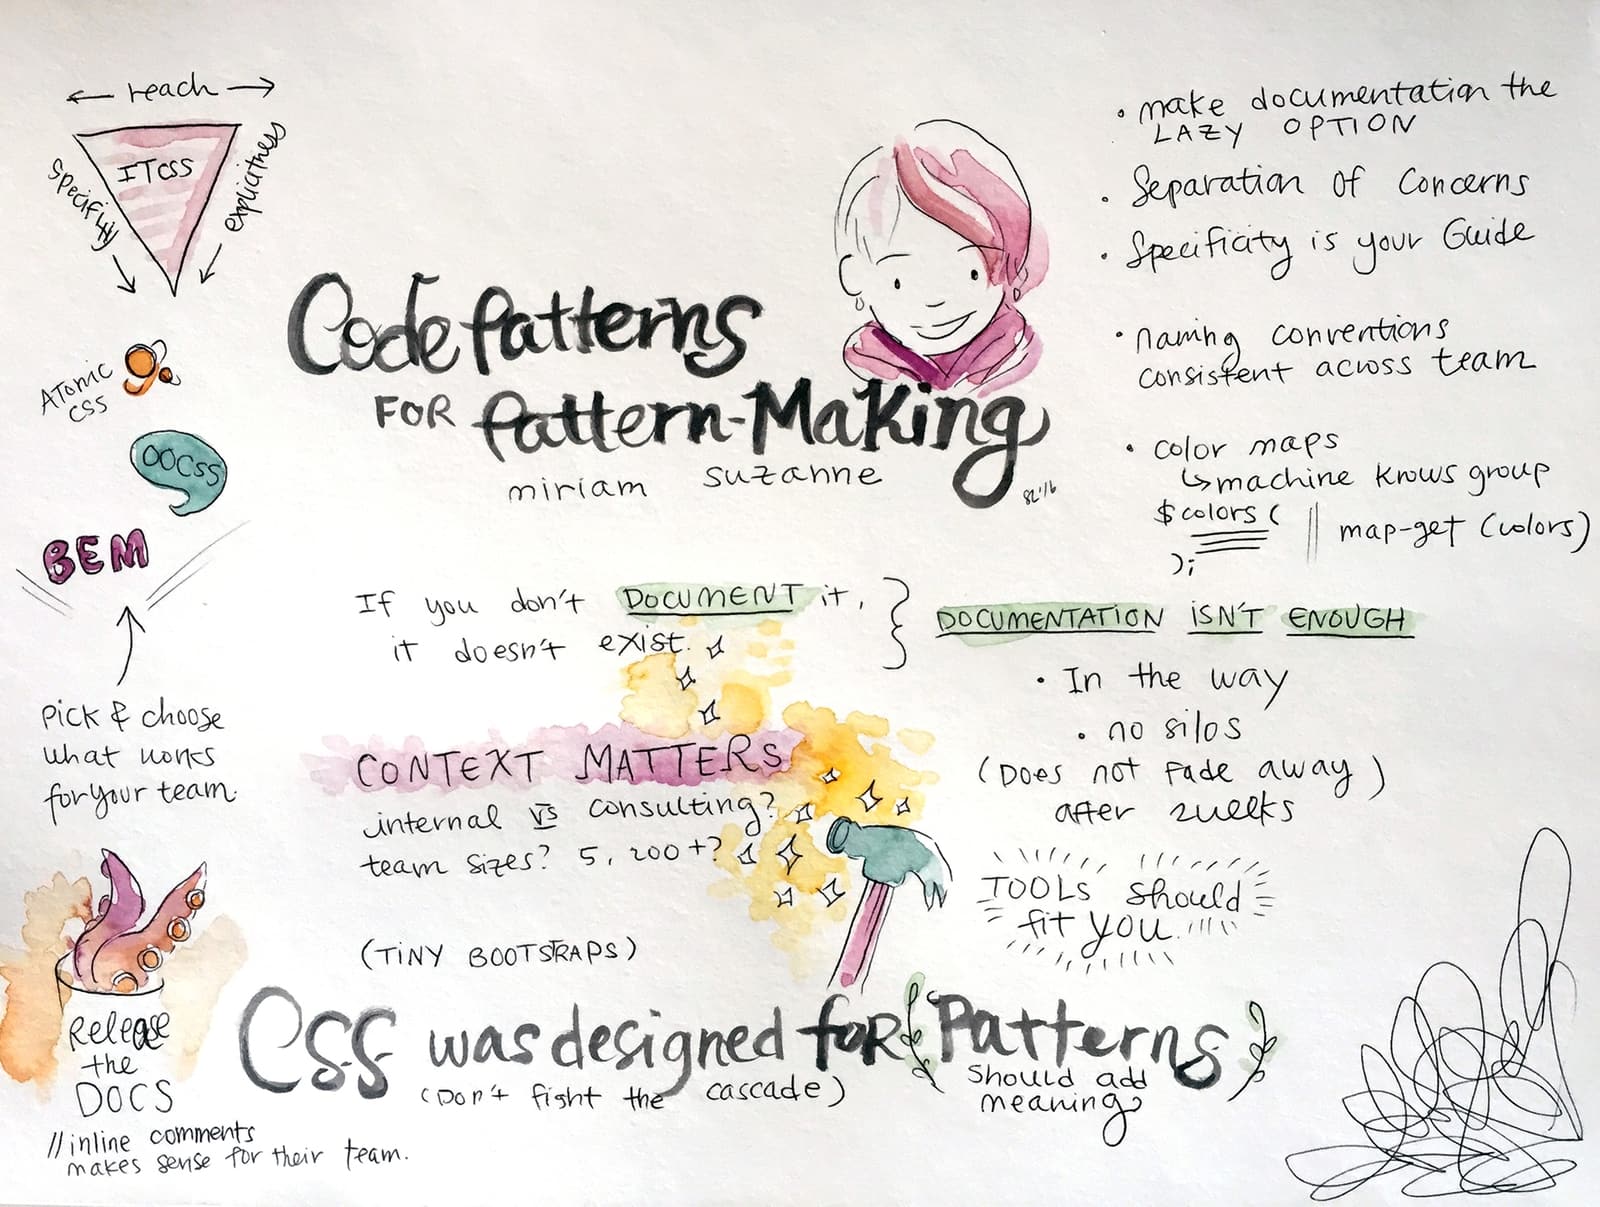 ← reach →
ITCSS
specifity
explicitness
ATOMIC
CSS
OOCSS
BEM
Pick & choose
what works
for your team.
Release
the
DOCS
// inline comments
makes sense for their team.
Code Patterns
FOR Pattern-Making
miriam suzanne
If you don't DOCUMENT it,
it doesn't exist.
CONTEXT MATTERS
internal vs consulting?
team sizes? 5, 200+?
(TINY BOOTSTRAPS)
CSS was designed for {Patterns}
(Don't fight the cascade)
should add
meaning
• make documentation the
LAZY OPTION
• Separation of Concerns
• Specificity is your Guide
• naming conventions
consistent across team
• color maps
↳ machine knows group
$colors ( || map-get (colors)
);
DOCUMENTATION ISN'T ENOUGH
• In the way
• no silos
(Does not fade away)
after 2 weeks
TOOLS should
fit you.